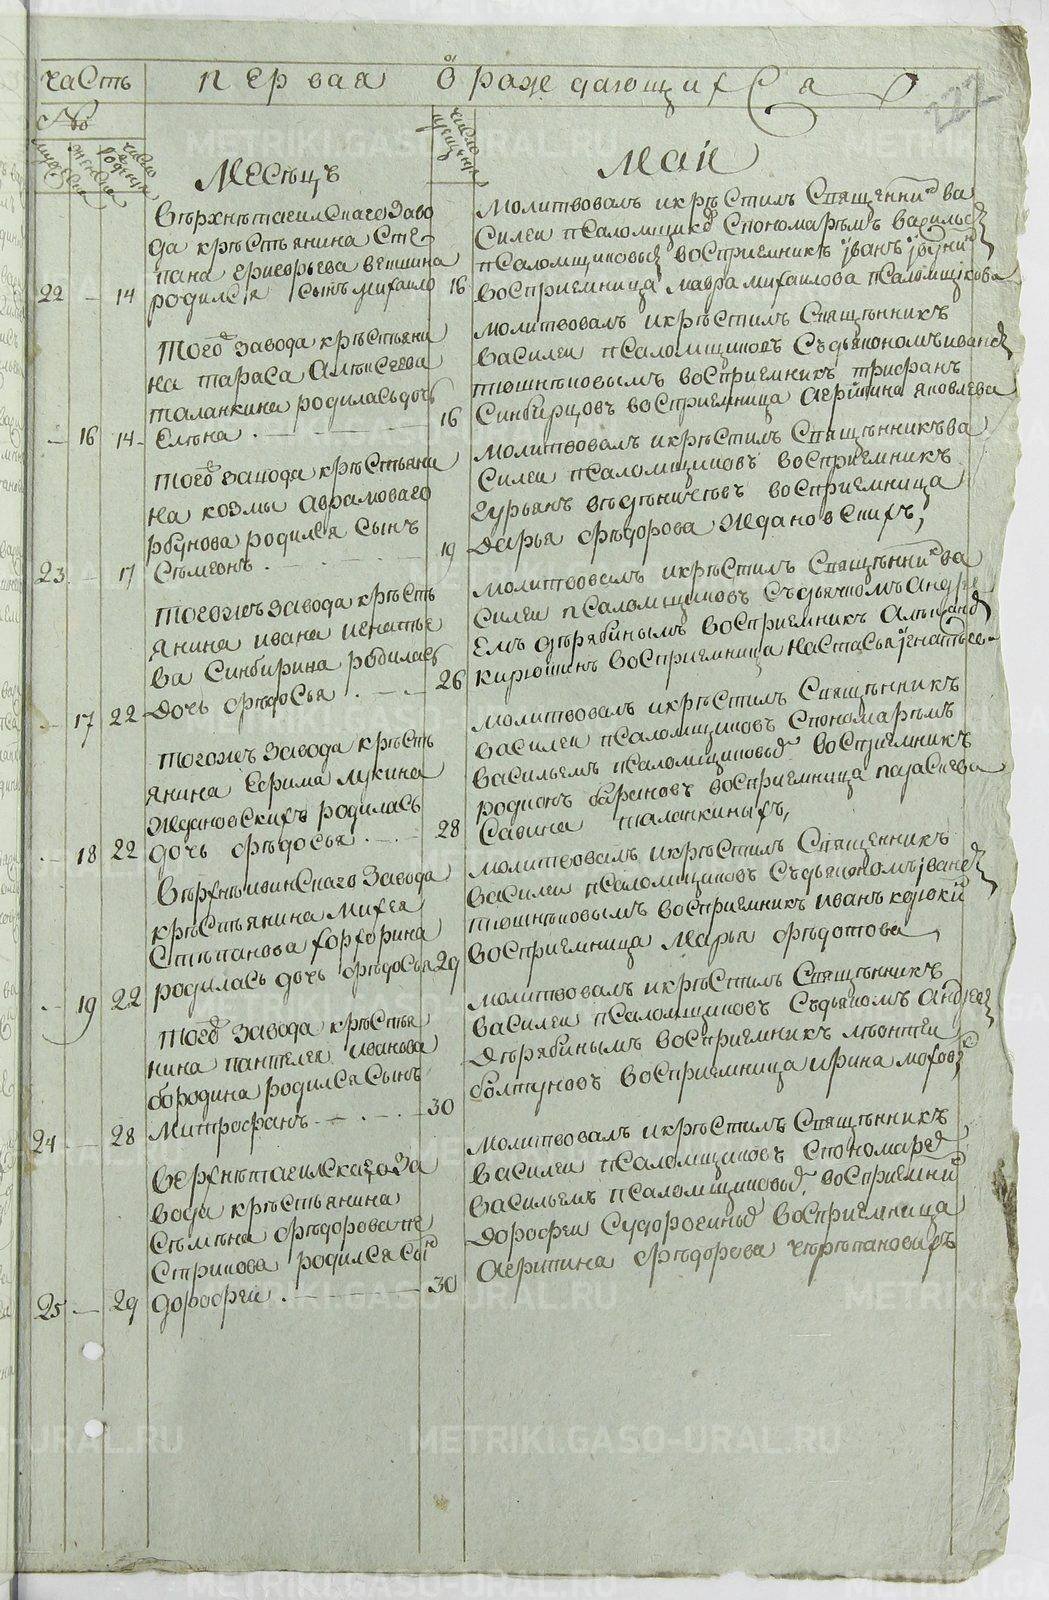 часть первая о раждающихся
222
№
мужеска
женска
число рождения
месяцъ
число крещения
маи
верхнътагилскаго заво
да кръстьянина Сте
пана григорьева ветшина
22 — 14 родился сынъ михаило 16
молитвовалъ икръстилъ Священникъ ва
силеи псаломщиковъ Спономаръмъ васильем
псаломщиковым восприемникъ иванъ
восприемница мавра михаилова псаломщикова
того завода кръстьяни
на тараса алъксеева
таланкина родиласьдочь
— 16 14 елъна 16
молитвовалъ икръстилъ Священникъ
василеи псаломщиковъ Съдьякономъиваном
тюшняковымъ восприемникъ трифанъ
синбирцовъ восприемница агрипина яковлева
того завода кръстьяни
на козмы аврамоваго
родился сынъ
23 — 17 Съмеонъ 19
молитвовалъ икръстилъ Священникъва
силеи псаломщиковъ восприемникъ
гурьянъ восприемница
дарья федорова ждановскихъ,
тогожъ завода кръсть
янина ивана игнатье
ва Синбирина родилась
— 17 22 дочь федосья 26
молитвовалъ икръстилъ Священникъ ва
силеи псаломщиковъ Съдьячкомъандре
емъ дърябинымъ восприемникъ
кирюшинъ восприемница настасья игнатьева
тогожъ завода кръсть
янина ефима лукина
ждановскихъ родилась
— 18 22 дочь федосья 28
молитвовалъ икръстилъ Священникъ
василеи псаломщиковъ Спономаръмъ
васильемъ псаломщиковым восприемникъ
родионъ барановъ восприемница параскева
савина таланкиныхъ,
верхнъивинскаго завода
кръстьянина михея
стъпанова форфорина
— 19 22 родилась дочь федосья 29
молитвовалъ икръстилъ Священникъ
василеи псаломщиковъ Съдьякономъиваном
тюшняковымъ восприемникъ иванъ
восприемница марья федотова
того завода кръстья
нина пантелея иванова
бородина родился Сынъ
24 — 28 митрофанъ 30
молитвовалъ икръстилъ Священникъ
василеи псаломщиковъ Съдьякомъ андреем
дърябинымъ восприемникъ лъонтеи
болтуновъ восприемница ирина махова
верхнътагилскагоза
вода кръстьянина
Съмъна федорова пе
стрикова родился Сы
25 — 29 дорофеи 30
молитвовалъ икръстилъ Священникъ
василеи псаломщиковъ Спономарем
васильемъ псаломщиковым восприемни
дорофеи Судорогиным восприемница
агрипина федорова черъпановыхъ